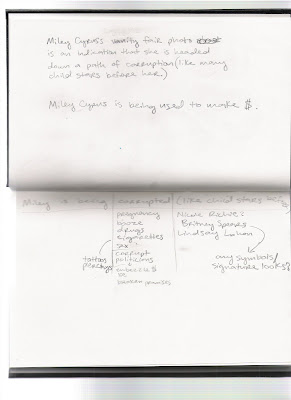 Miley Cyrus's vanity fair photo
is an indication that she is headed
down a path of corruption (like many
child stars before her.)
Miley Cyrus is being used to make $.
Miley is being corrupted (like child stars
pregnancy
booze
drugs
cigarettes
sex
corrupt
politicians
broken promises
tattoos
piercings
Nicole Richie
Britney Spears
Lindsay Lohan
any symbols/
signature looks?